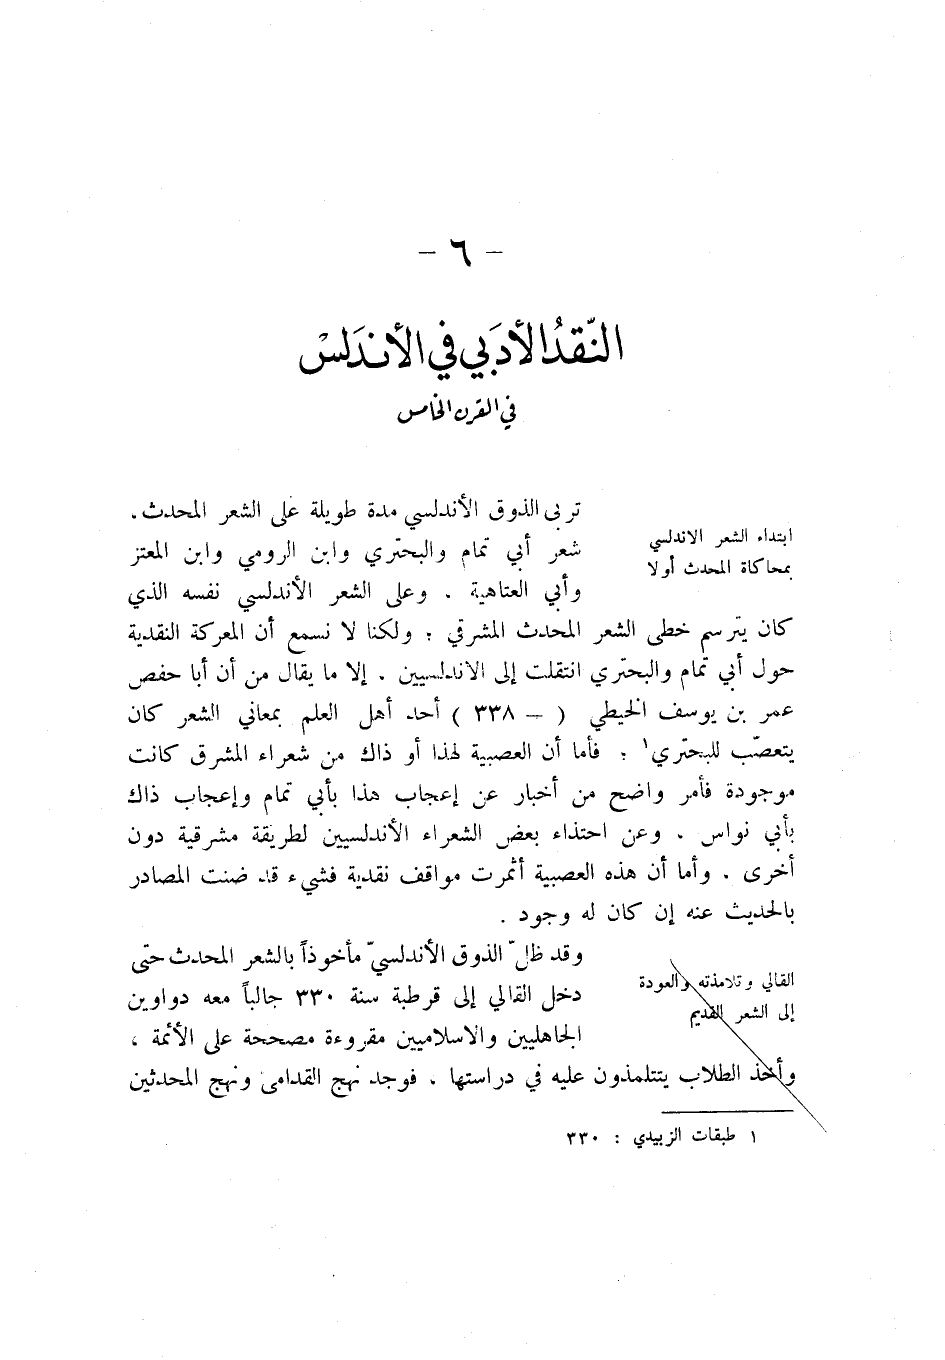 - ٦ -
النّقدُ الأدَبي في الأندَلسْ
في القرن الخامس
ابتداء الشعر الاندلسي
بمحاكاة المحدث أولا
تربى الذوق الأندلسي مدة طويلة على الشعر المحدث ،
شعر أبي تمام والبحتري وابن الرومي وابن المعتز
وأبي العتاهية . وعلى الشعر الأندلسي نفسه الذي
كان يترسم خطى الشعر المحدث المشرقي ؛ ولكنا لا نسمع أن المعركة النقدية
حول أبي تمام والبحتري انتقلت إلى الاندلسيين ، إلا ما يقال من أن أبا حفص
عمر بن يوسف الحيطي ( – ٣٣٨ ) أحد أهل العلم بمعاني الشعر كان
يتعصّب للبحتري١ ؛ فأما أن العصبية لهذا أو ذاك من شعراء المشرق كانت
موجودة فأمر واضح من أخبار عن إعجاب هذا بأبي تمام وإعجاب ذاك
بأبي نواس ، وعن احتذاء بعض الشعراء الأندلسيين لطريقة مشرقية دون
أخرى . وأما أن هذه العصبية أثمرت مواقف نقدية فشيء قد ضنت المصادر
بالحديث عنه إن كان له وجود .
القالي وتلامذته والعودة
إلى الشعر القديم
وقد ظلّ الذوق الأندلسيّ مأخوذاً بالشعر المحدث حتى
دخل القالي إلى قرطبة سنة ٣٣٠ جالباً معه دواوين
الجاهليين والاسلاميين مقروءة مصححة على الأئمة ،
وأخذ الطلاب يتتلمذون عليه في دراستها ، فوجد نهج القدامى ونهج المحدثين
١ طبقات الزبيدي : ٣٣٠